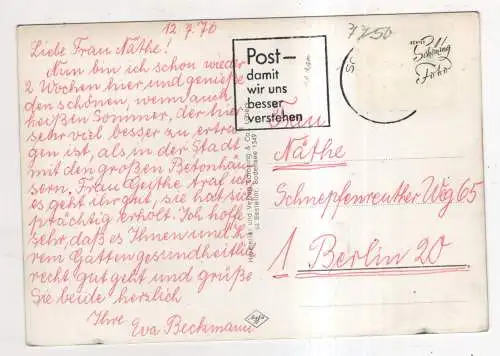 12.7.70
Liebe Frau Näthe!
Nun bin ich schon wieder
2 Wochen hier, und genieße
den schönen, wenn auch
heißen Sommer, der hier
sehr viel besser zu ertra-
gen ist, als in der Stadt
mit den großen Betonhäu-
sern. Frau Geithe
es geht ihr gut, sie hat sich
prächtig erholt. Ich hoffe
sehr, daß es Ihnen und Ih-
rem Gatten gesundheitlich
recht gut geht und grüße
Sie beide herzlich
Ihre
Eva Beckmann
Post –
damit
wir uns
besser
verstehen
7750
Schöning
Foto
Frau
Näthe
Schnepfenreuther Weg 65
1 Berlin 20